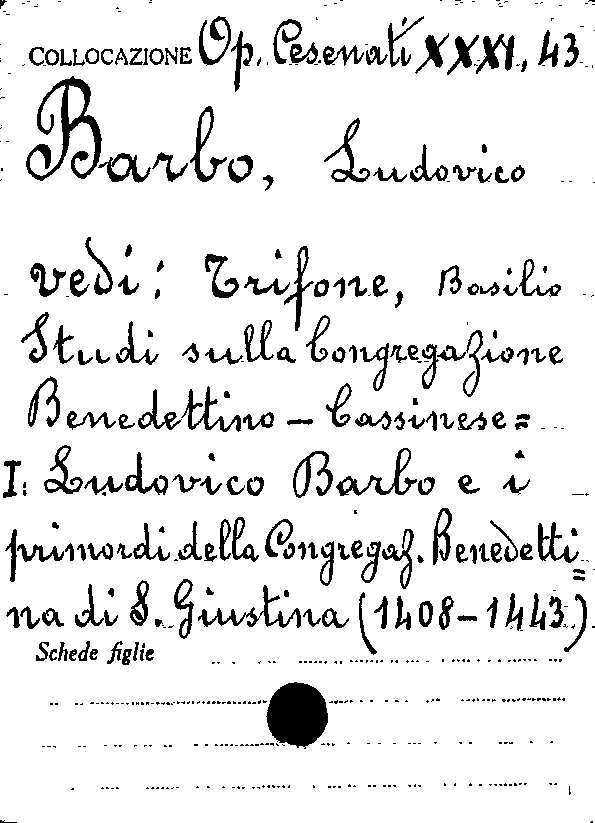 COLLOCAZIONE Op. Cesenati XXXI, 43
Barbo, Ludovico
vedi: Trifone, Basilio
Studi sulla Congregazione
Benedettino - Cassinese =
I: Ludovico Barbo e i
primordi della Congregaz. Benedetti=
na di S. Giustina (1408-1443)
Schede figlie